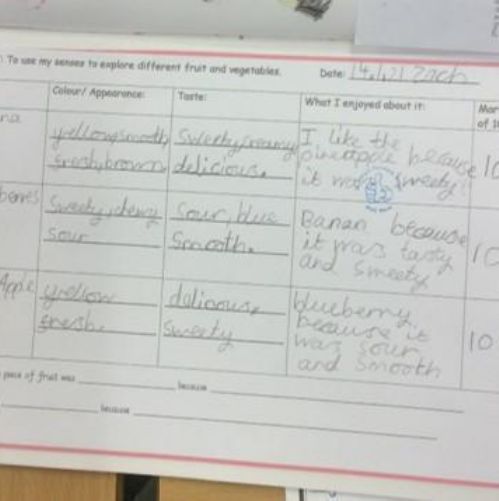 To use my senses to explore different fruit and vegetables.
Date: 14.1.21 Zach
Colour/ Appearance:
Taste:
What I enjoyed about it:
Mar
of 10
na
yellow, smooth
fresh, brown
Sweety, creamy
delicious.
I like the
pineapple because
it was sweety
10
berries
Sweety, chewy
sour
Sour, blue
Smooth.
Banan because
it was tasty
and sweety
10
Apple
yellow
fresh.
delicous,
sweety
blueberry
because it
was sour
and smooth
10
piece of fruit was
because
because